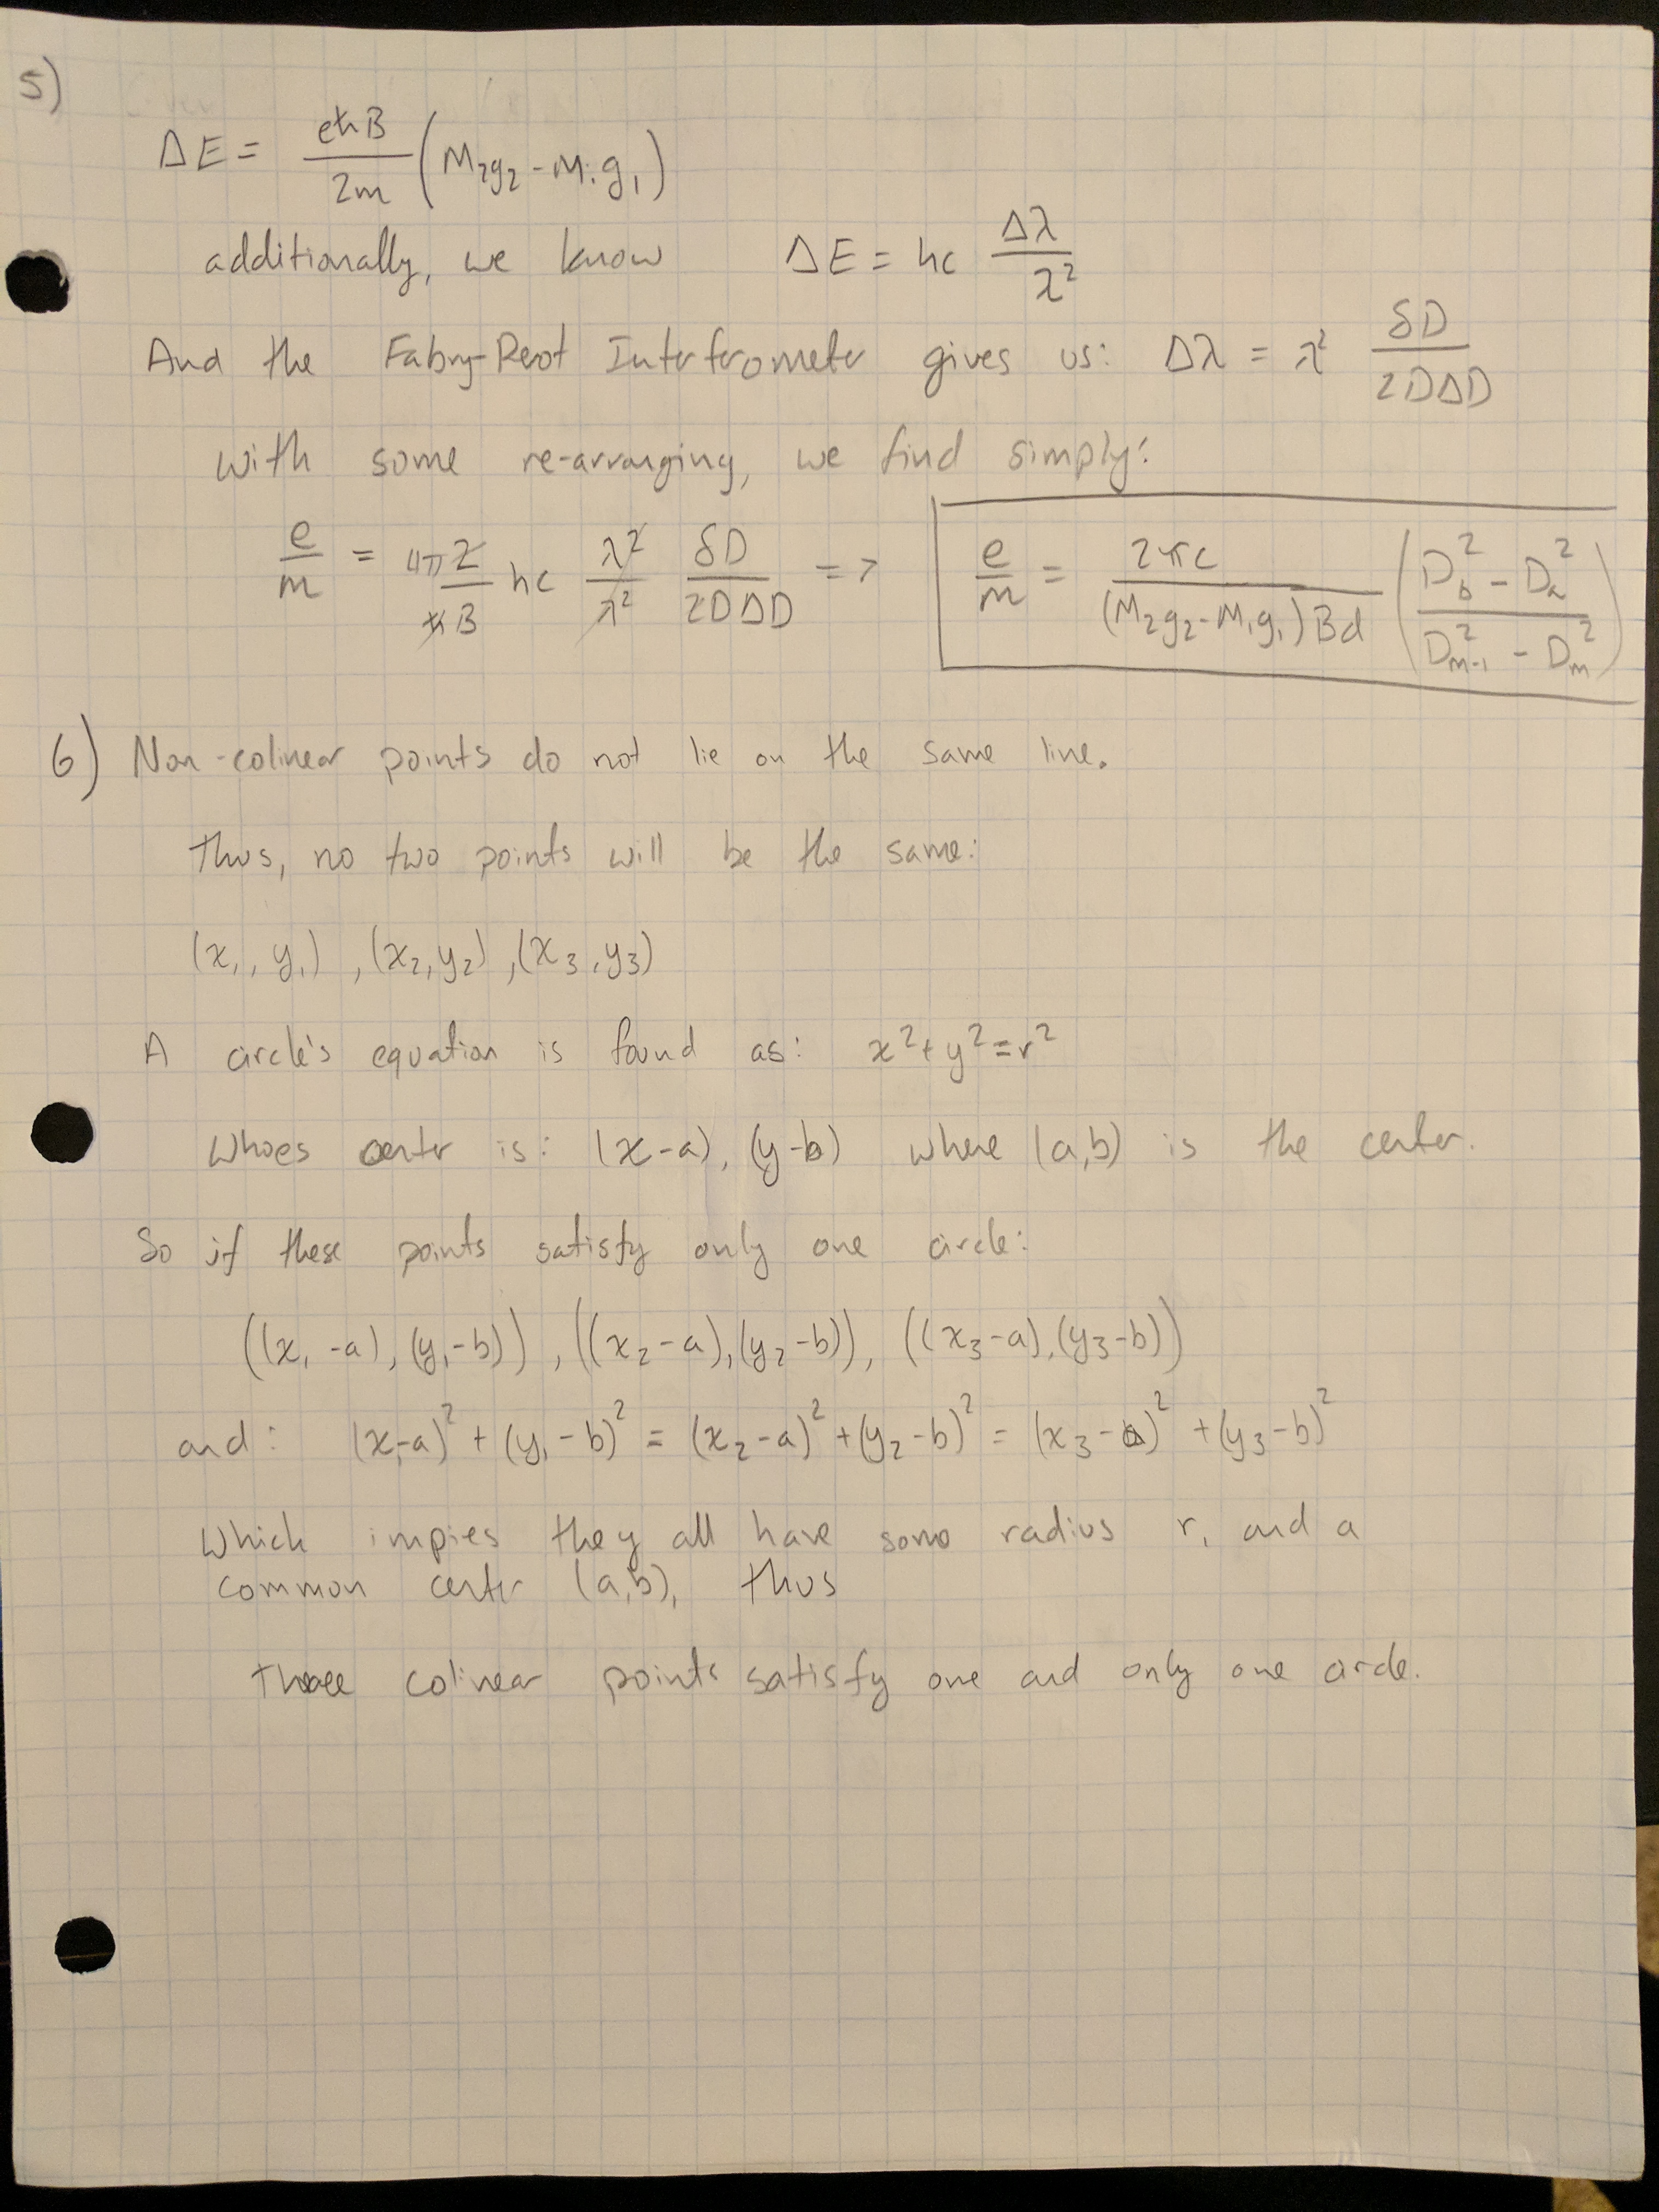 5)
ΔE = eħB / 2m (M₂g₂ - M₁g₁)
additionally, we know ΔE = hc Δλ / λ²
And the Fabry-Perot Interferometer gives us: Δλ = λ² δD / 2DΔD
with some re-arranging, we find simply:
e/m = 4π2 / ħB hc λ²/λ² δD / 2DΔD => e/m = 2πc / (M₂g₂-M₁g₁)Bd (D_b² - D_a² / D_m-1² - D_m²)
6) Non-colinear points do not lie on the same line.
Thus, no two points will be the same:
(x₁, y₁), (x₂, y₂), (x₃, y₃)
A circle's equation is found as: x² + y² = r²
Whoes center is: (x-a), (y-b) where (a,b) is the center.
So if these points satisfy only one circle:
((x₁-a), (y₁-b)), ((x₂-a), (y₂-b)), ((x₃-a), (y₃-b))
and: (x₁-a)² + (y₁-b)² = (x₂-a)² + (y₂-b)² = (x₃-a)² + (y₃-b)²
Which impies they all have some radius r, and a
common center (a,b), thus
Three colinear points satisfy one and only one circle.